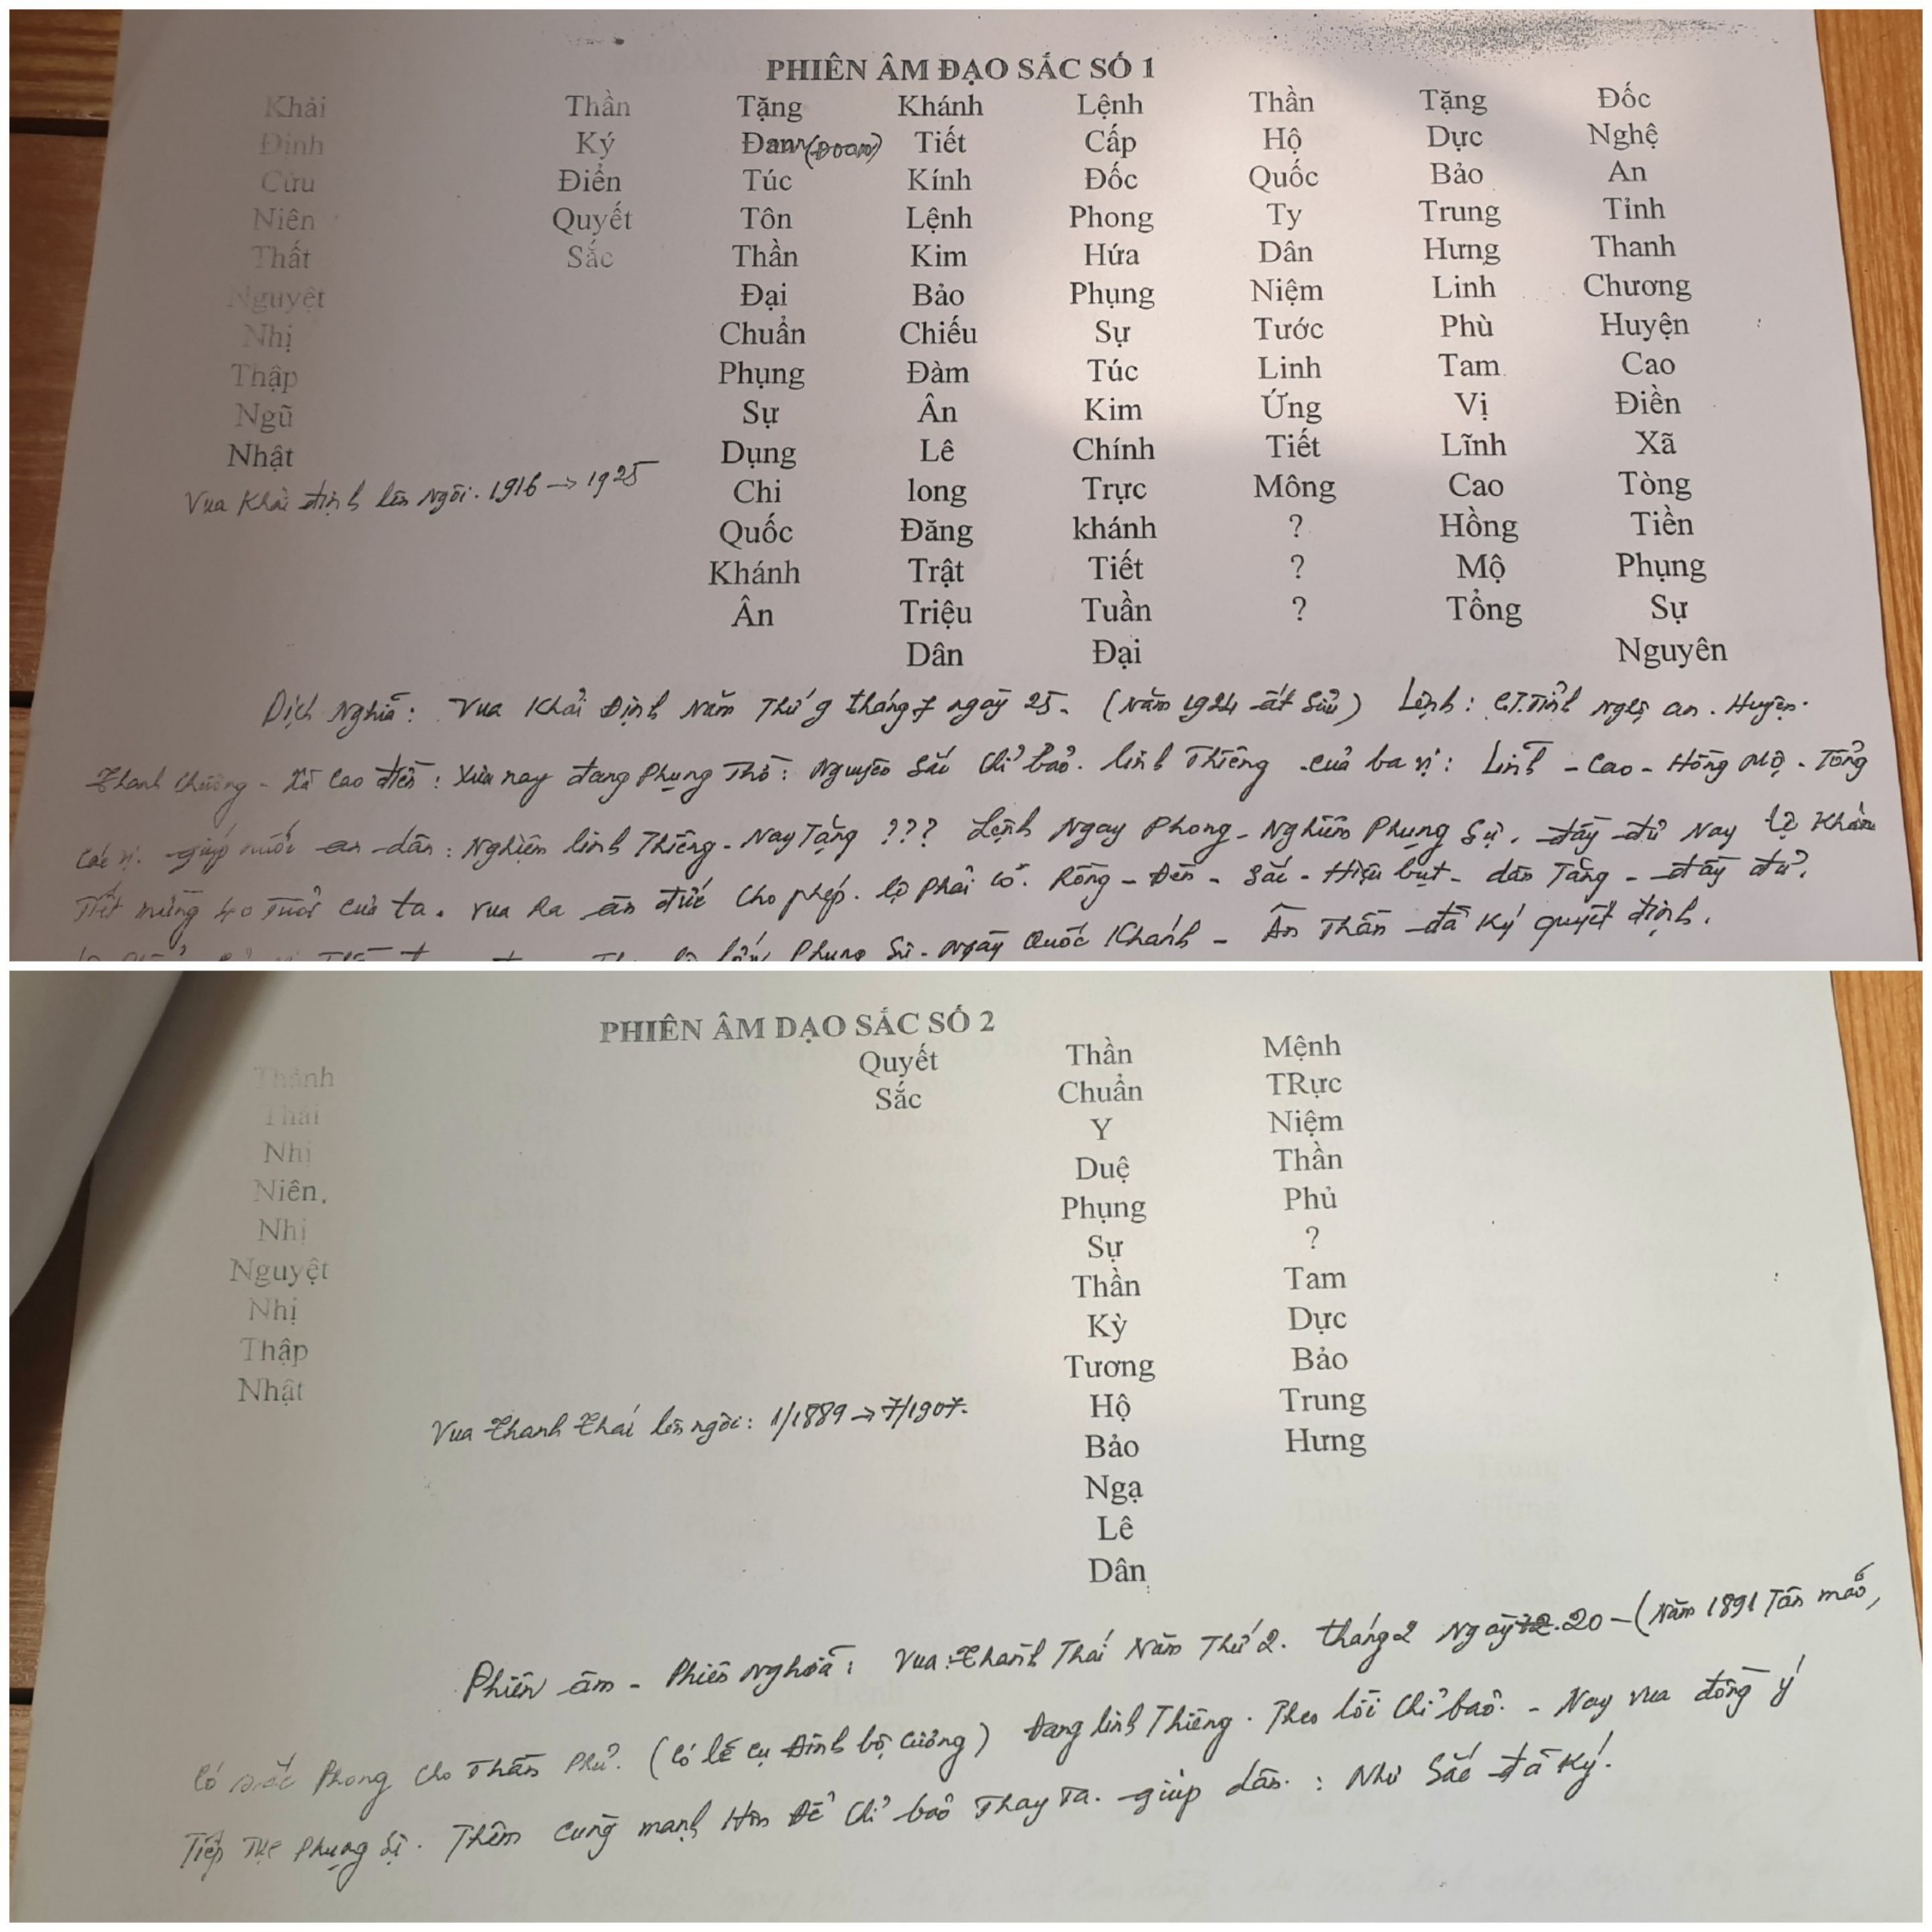 PHIÊN ÂM ĐẠO SẮC SỐ 1
Khải Thần Tặng Khánh Lệnh Thần Tặng Đốc
Định Ký Đan (Đoan) Tiết Cấp Hộ Dực Nghệ
Cửu Điển Túc Kính Đốc Quốc Bảo An
Niên Quyết Tôn Lệnh Phong Ty Trung Tỉnh
Thất Sắc Thần Kim Hứa Dân Hưng Thanh
Nguyệt Đại Bảo Phụng Niệm Linh Chương
Nhị Chuẩn Chiếu Sự Tước Phù Huyện
Thập Phụng Đàm Túc Linh Tam Cao
Ngũ Sự Ân Kim Ứng Vị Điền
Nhật Dụng Lê Chính Tiết Lĩnh Xã
Chi long Trực Mông Cao Tòng
Quốc Đăng khánh ? Hồng Tiền
Khánh Trật Tiết ? Mộ Phụng
Ân Triệu Tuần ? Tổng Sự
Dân Đại Nguyên
Vua Khải định lên ngôi. 1916 → 1925
Dịch Nghĩa: Vua Khải Định Năm Thứ 9 tháng 7 ngày 25. (Năm 1924 ất Sửu) Lệnh: Tỉnh nghệ an. Huyện.
Thanh Chương - Xã Cao điền: Xưa nay đang Phụng Thờ: Nguyên Sắc Chỉ bảo. linh Thiêng của ba vị: Lĩnh - Cao - Hồng Mộ - Tổng
Các vị. giúp nước an dân: Nghiệm linh Thiêng - Nay Tặng ??? Lệnh Ngay Phong - Nghiêm Phụng Sự. đầy đủ Nay
Tiết mừng 40 Tuổi của ta. Vua Ra ân đức Cho phép. lộ phải có. Rồng - Đến - Sắc - Hiệu bụt - dân Tặng - đầy đủ.
Phụng Sự - ngày Quốc Khánh - Ân Thần đã Ký quyết định.
PHIÊN ÂM DẠO SẮC SỐ 2
Thành Quyết Thần Mệnh
Thái Sắc Chuẩn TRực
Nhị Y Niệm
Niên. Duệ Thần
Nhị Phụng Phủ
Nguyệt Sự ?
Nhị Thần Tam
Thập Kỳ Dực
Nhật Tương Bảo
Hộ Trung
Bảo Hưng
Ngạ
Lê
Dân
Vua Thanh Thái lên ngôi: 1/1889 → 7/1907.
Phiên âm - Phiên nghĩa: Vua: Thành Thái Năm Thứ 2. tháng 2 Ngày 20 - (Năm 1891 Tân mão,
Có sắc Phong Cho Thần Phủ. (Có lẽ cụ Đinh bộ Cương) Đang linh Thiêng. Theo lời Chỉ bảo. - Nay vua đồng ý
Tiếp Tục Phụng Sự. Thêm Cũng mạnh Hơn Để Chỉ bảo Thay Ta. giúp dân. : Như Sắc đã Ký.